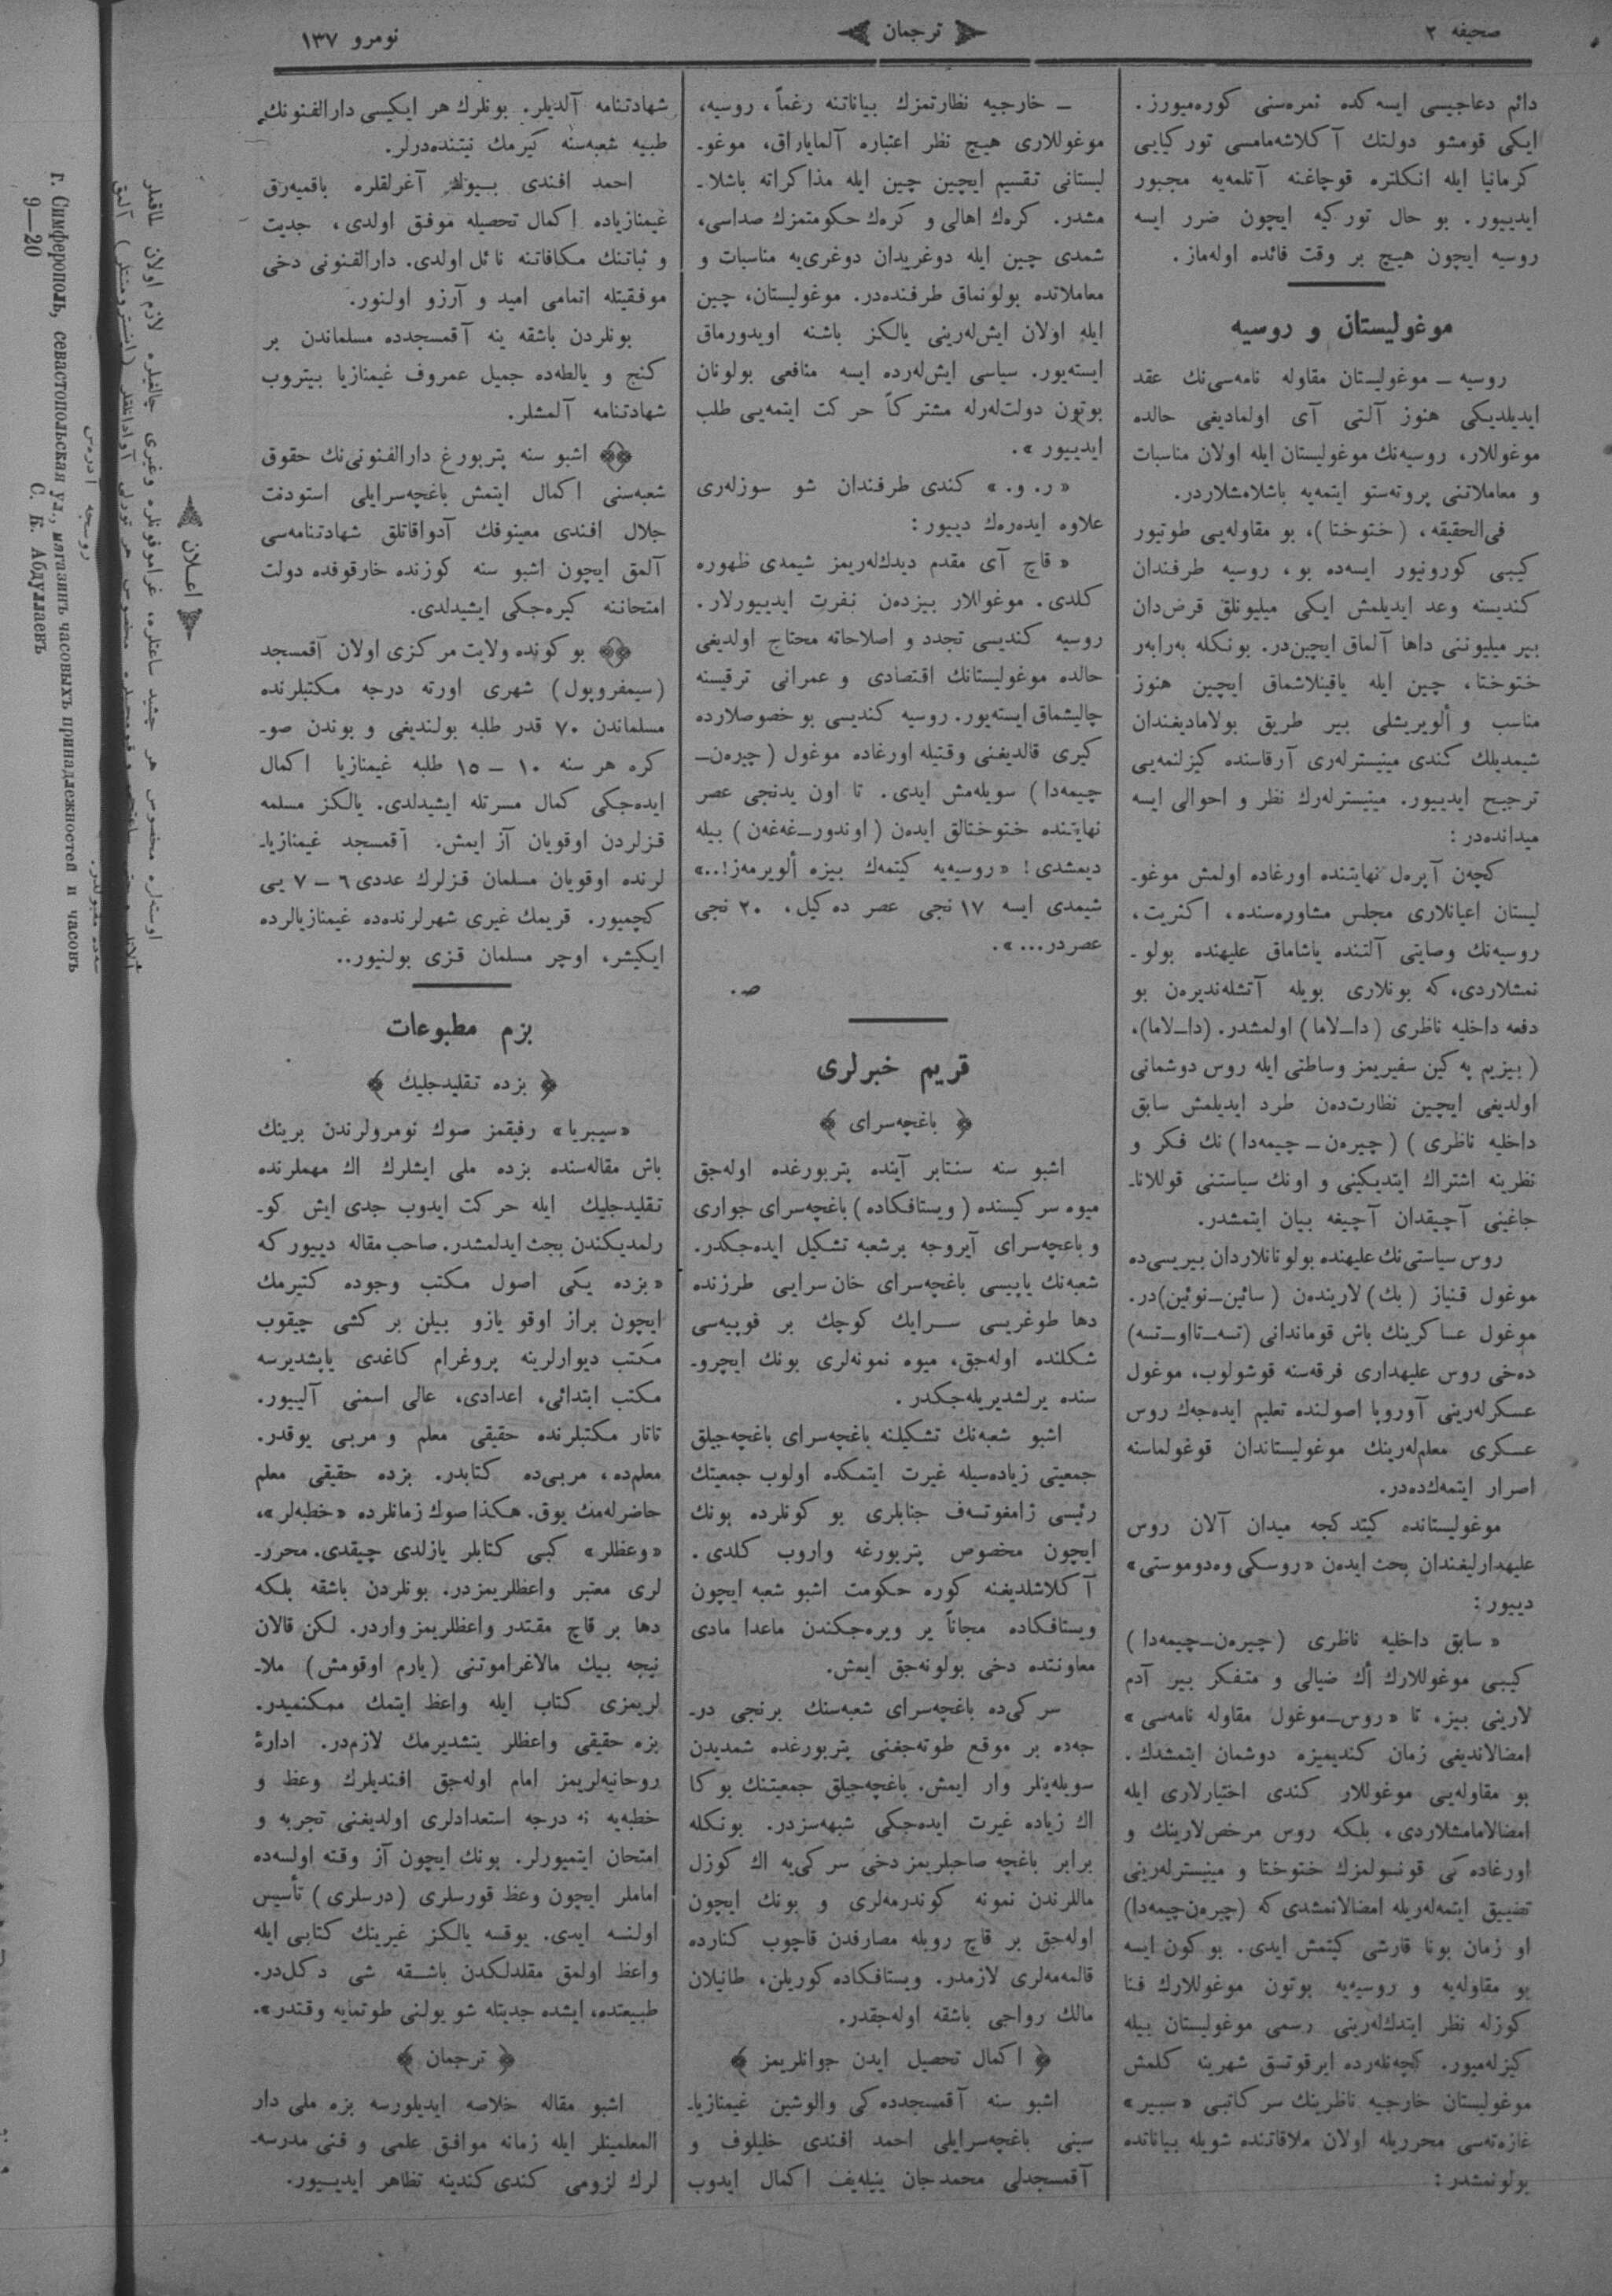 صحیفه ٢
ترجمان
نومرو ١٣٧
دائم دعاجیسی ایسه‌كده ثمره‌سنی كوره‌میورز.
ایكی قومشو دولتك آكلاشه‌مامسی توركیایی
كرمانیا ایله انكلتره قوچاغنه آتلمه‌یه مجبور
ایدییور. بو حال توركیه ایچون ضرر ایسه
روسیه ایچون هیچ بر وقت فائده اوله‌ماز.
موغولیستان و روسیه
روسیه – موغولیستان مقاوله نامه‌سی‌نك عقد
ایدیلدیكی هنوز آلتی آی اولمادیغی حالده
موغوللار، روسیه‌نك موغولیستان ایله اولان مناسبات
و معاملاتنی پروته‌ستو ایتمه‌یه باشلامشلاردر.
فی‌الحقیقه، (ختوختا)، بو مقاوله‌یی طوتیور
كیبی كورونیور ایسه‌ده بو، روسیه طرفندان
كندیسنه وعد ایدیلمش ایكی میلیونلق قرض‌دان
بیر میلیوننی داها آلماق ایچین‌در. بونكله به‌رابه‌ر
ختوختا، چین ایله یاقینلاشماق ایچین هنوز
مناسب و ألویریشلی بیر طریق بولامادیغندان
شیمدیلك كندی مینیسترله‌ری آرقاسنده كیزلنمه‌یی
ترجیح ایدییور. مینیسترله‌رك نظر و احوالی ایسه
میدانده‌در:
كچه‌ن آپره‌ل نهایتنده اورغاده اولمش موغو-
لیستان اعیانلاری مجلس مشاوره‌سنده، اكثریت،
روسیه‌نك وصایتی آلتنده یاشاماق علیهنده بولو-
نمشلاردی، كه بونلاری بویله آتشله‌ندیره‌ن بو
دفعه داخلیه ناظری (دا–لاما) اولمشدر. (دا–لاما)،
(بیزیم په‌كین سفیریمز وساطتی ایله روس دوشمانی
اولدیغی ایچین نظارت‌دن طرد ایدیلمش سابق
داخلیه ناظری) (چیره‌ن – چیمه‌دا) نك فكر و
نظرینه اشتراك ایتدیكینی و اونك سیاستنی قوللانا-
جاغینی آچیقدان آچیغه بیان ایتمشدر.
روس سیاستی‌نك علیهنده بولونانلاردان بیریسی‌ده
موغول قنیاز (بك) لاریندن (سائین–نوئین)در.
موغول عساكرینك باش قوماندانی (تسه–تااو–تسه)
ده‌خی روس علیهداری فرقه‌سنه قوشولوب، موغول
عسكرله‌رینی آوروپا اصولنده تعلیم ایده‌جه‌ك روس
عسكری معلمله‌رینك موغولیستاندان قوغولماسنه
اصرار ایتمه‌كده‌در.
موغولیستانده كیتدكجه میدان آلان روس
علیهدارلیغندان بحث ایده‌ن «روسكی وه‌دوموستی»
دییور:
«سابق داخلیه ناظری (چیره‌ن–چیمه‌دا)
كیبی موغوللارك أك ضیالی و متفكر بیر آدم
لارینی بیز، تا «روس–موغول مقاوله نامه‌سی»
امضالاندیغی زمان كندیمیزه دوشمان ایتمشدك.
بو مقاوله‌یی موغوللار كندی اختیارلاری ایله
امضالامامشلاردی، بلكه روس مرخص‌لارینك و
اورغاده‌كی قونسولمزك ختوختا و مینیسترله‌رینی
تضییق ایتمه‌له‌ریله امضالانمشدی كه (چیره‌ن‌چیمه‌دا)
او زمان بونا قارشی كیتمش ایدی. بوكون ایسه
بو مقاوله‌یه و روسیه‌یه بوتون موغوللارك فنا
كوزله نظر ایتدكله‌رینی رسمی موغولیستان بیله
كیزله‌میور. كچه‌نله‌رده ایرقوتسق شهرینه كلمش
موغولیستان خارجیه ناظرینك سركاتبی «سیبیر»
غازه‌ته‌سی محرریله اولان ملاقاتنده شویله بیاناتده
بولونمشدر:
– خارجیه نظارتمزك بیاناتنه رغماً، روسیه،
موغوللاری هیچ نظر اعتباره آلمایاراق، موغو-
لیستانی تقسیم ایچین چین ایله مذاكراته باشلا-
مشدر. كره‌ك اهالی و كره‌ك حكومتمزك صداسی،
شمدی چین ایله دوغریدان دوغری‌یه مناسبات و
معاملاتده بولونماق طرفنده‌در. موغولیستان، چین
ایله اولان ایش‌له‌رینی یالكز باشنه اویدورماق
ایسته‌یور. سیاسی ایش‌له‌رده ایسه منافعی بولونان
بوتون دولت‌له‌رله مشتركاً حركت ایتمه‌یی طلب
ایدییور».
«ر. و.» كندی طرفندان شو سوزله‌ری
علاوه ایده‌ره‌ك دییور:
«قاچ آی مقدم دیدك‌له‌ریمز شیمدی ظهوره
كلدی. موغوللار بیزده‌ن نفرت ایدییورلار.
روسیه كندیسی تجدد و اصلاحاته محتاج اولدیغی
حالده موغولیستانك اقتصادی و عمرانی ترقیسنه
چالیشماق ایسته‌یور. روسیه كندیسی بو خصوصلارده
كیری قالدیغنی وقتیله اورغاده موغول (چیره‌ن–
چیمه‌دا) سویله‌مش ایدی. تا اون یدنجی عصر
نهایتنده ختوختالق ایده‌ن (اوندور–غه‌غه‌ن) بیله
دیمشدی! «روسیه‌یه كیتمه‌ك بیزه ألویرمه‌ز!..»
شیمدی ایسه ١٧ نجی عصر ده‌كیل، ٢٠ نجی
عصردر...».
ص.
قریم خبرلری
باغچه‌سرای
اشبو سنه سنتابر آینده پتربورغده اوله‌جق
میوه سركیسنده (ویستافكاده) باغچه‌سرای جواری
و باغچه‌سرای آیروجه برشعبه تشكیل ایده‌جكدر.
شعبه‌نك یاپیسی باغچه‌سرای خان‌سرایی طرزنده
دها طوغریسی سرایك كوچك بر قوپیه‌سی
شكلنده اوله‌جق، میوه نمونه‌لری بونك ایچرو-
سنده یرلشدیریله‌جكدر.
اشبو شعبه‌نك تشكیلنه باغچه‌سرای باغچه‌جیلق
جمعیتی زیاده‌سیله غیرت ایتمكده اولوب جمعیتك
رئیسی زامغوتسه‌ف جنابلری بو كونلرده بونك
ایچون مخصوص پتربورغه واروب كلدی.
آكلاشلدیغنه كوره حكومت اشبو شعبه ایچون
ویستافكاده مجاناً یر ویره‌جكندن ماعدا مادی
معاونتده دخی بولونه‌جق ایمش.
سركی‌ده باغچه‌سرای شعبه‌سنك برنجی در-
جه‌ده بر موقع طوته‌جغنی پتربورغده شمدیدن
سویله‌ینلر وار ایمش. باغچه‌جیلق جمعیتنك بوكا
اك زیاده غیرت ایده‌جكی شبهه‌سزدر. بونكله
برابر باغچه صاحبلریمز دخی سركی‌یه اك كوزل
ماللرندن نمونه كوندرمه‌لری و بونك ایچون
اوله‌جق بر قاچ روبله مصارفدن قاچوب كنارده
قالمه‌مه‌لری لازمدر. ویستافكاده كوریلن، طانیلان
مالك رواجی باشقه اوله‌جقدر.
اكمال تحصیل ایدن جوانلریمز
اشبو سنه آقمسجدده‌كی والوشین غیمنازیا-
سینی باغچه‌سرایلی احمد افندی خلیلوف و
آقمسجدلی محمدجان ینیله‌یف اكمال ایدوب
شهادتنامه آلدیلر. بونلرك هر ایكیسی دارالفنونك
طبیه شعبه‌سنه كیرمك نیتنده‌درلر.
احمد افندی بیوك آغرلقلره باقمیه‌رق
غیمنازیاده اكمال تحصیله موفق اولدی، جدیت
و ثباتنك مكافاتنه نائل اولدی. دارالفنونی دخی
موفقیتله اتمامی امید و آرزو اولنور.
بونلردن باشقه ینه آقمسجدده مسلماندن بر
كنج و یالطه‌ده جمیل عمروف غیمنازیا بیتروب
شهادتنامه آلمشلر.
اشبو سنه پتربورغ دارالفنونی‌نك حقوق
شعبه‌سنی اكمال ایتمش باغچه‌سرایلی استودنت
جلال افندی معینوفك آدواقاتلق شهادتنامه‌سی
آلمق ایچون اشبو سنه كوزنده خارقوفده دولت
امتحاننه كیره‌جكی ایشیدلدی.
بو كونده ولایت مركزی اولان آقمسجد
(سیمفروپول) شهری اورته درجه مكتبلرنده
مسلماندن ٧٠ قدر طلبه بولندیغی و بوندن صو-
كره هر سنه ١٠ – ١٥ طلبه غیمنازیا اكمال
ایده‌جكی كمال مسرتله ایشیدلدی. یالكز مسلمه
قزلردن اوقویان آز ایمش. آقمسجد غیمنازیا-
لرنده اوقویان مسلمان قزلرك عددی ٦ – ٧ یی
كچمیور. قریمك غیری شهرلرنده‌ده غیمنازیالرده
ایكیشر، اوچر مسلمان قزی بولنیور..
بزم مطبوعات
بزده تقلیدجلیك
«سیبریا» رفیقمز صوك نومرولرندن برینك
باش مقاله‌سنده بزده ملی ایشلرك اك مهملرنده
تقلیدجلیك ایله حركت ایدوب جدی ایش كو-
رلمدیكندن بحث ایدلمشدر. صاحب مقاله دییور كه
«بزده یكی اصول مكتب وجوده كتیرمك
ایچون براز اوقو یازو بیلن بر كشی چیقوب
مكتب دیوارلرینه پروغرام كاغدی یاپشدیرسه
مكتب ابتدائی، اعدادی، عالی اسمنی آلییور.
تاتار مكتبلرنده حقیقی معلم و مربی یوقدر.
معلم‌ده، مربی‌ده كتابدر. بزده حقیقی معلم
حاضرله‌مك یوق. هكذا صوك زمانلرده «خطبه‌لر»،
«وعظلر» كبی كتابلر یازلدی چیقدی. محرر-
لری معتبر واعظلریمزدر. بونلردن باشقه بلكه
دها بر قاچ مقتدر واعظلریمز واردر. لكن قالان
نیچه بیك مالاغراموتنی (یارم اوقومش) ملا-
لریمزی كتاب ایله واعظ ایتمك ممكنمیدر.
بزه حقیقی واعظلر یتشدیرمك لازم‌در. ادارۀ
روحانیه‌لریمز امام اوله‌جق افندیلرك وعظ و
خطبه‌یه نه درجه استعدادلری اولدیغنی تجربه و
امتحان ایتمیورلر. بونك ایچون آز وقته اولسه‌ده
اماملر ایچون وعظ قورسلری (درسلری) تأسیس
اولنسه ایدی. یوقسه یالكز غیرینك كتابی ایله
واعظ اولمق مقلدلكدن باشقه شی دكل‌در.
طبیعتده، ایشده جدیتله شو یولنی طوتمایه وقتدر».
ترجمان
اشبو مقاله خلاصه ایدیلورسه بزه ملی دار
المعلمینلر ایله زمانه موافق علمی و فنی مدرسه-
لرك لزومی كندی كندینه تظاهر ایدییور.
اعلان
اوسته‌لره مخصوص هر جشید ساعتلره، غراموفونلره وغیری چالغیلره لازم اولان طاقملر
روسجه آدره‌س
г. Симферополь, севастопольская ул., магазинъ часовыхъ принадлежностей и часовъ
С. Б. Абдуллаевъ
9—20